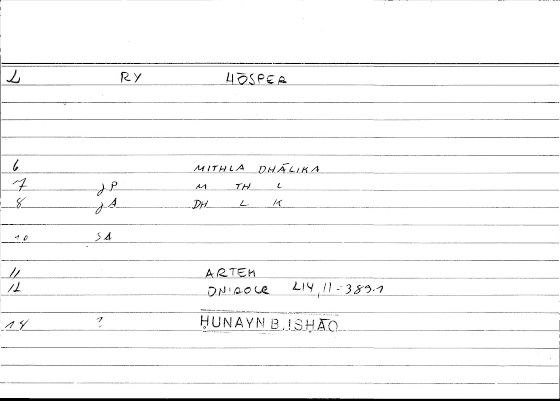 1 RY HŌSPER
6 MITHLA DHĀLIKA
7 jP M TH L
8 jA DH L K
10 SA
11 ARTEM
12 ONIROCR L14,11-389.1
14 ? ḤUNAYN B. ISḤĀQ